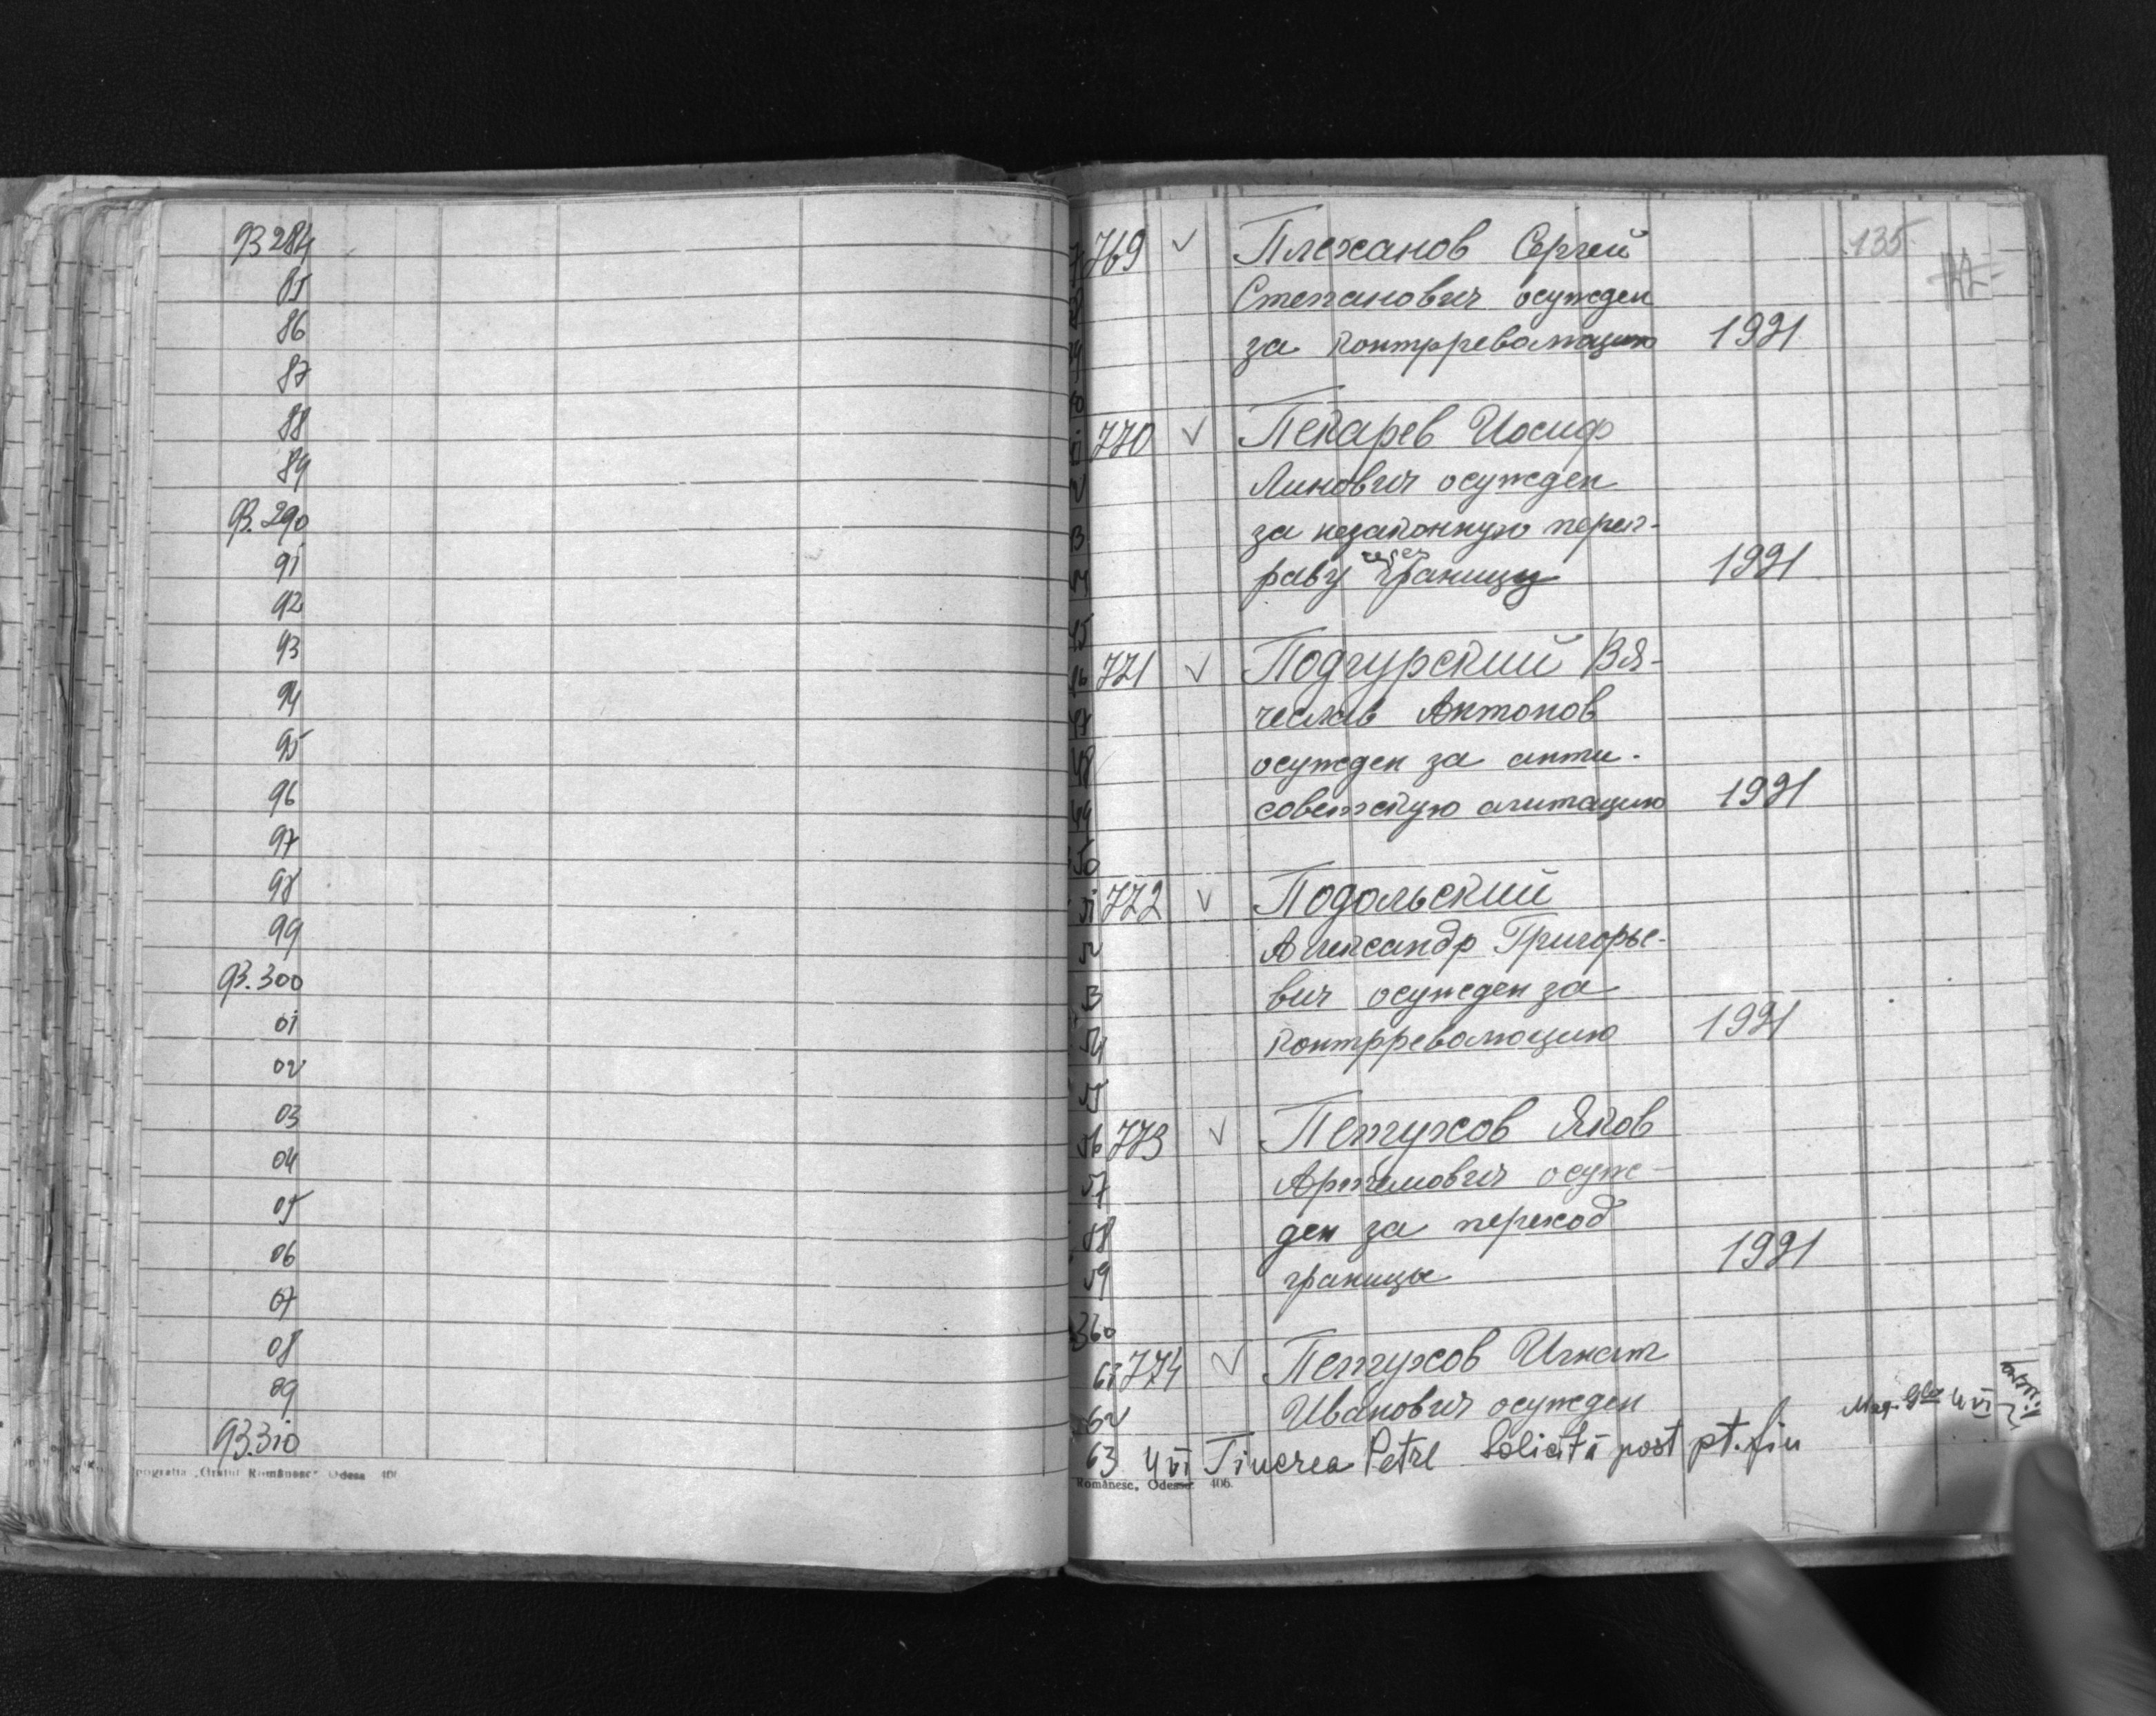 93284
85
86
87
88
89
93.290
91
92
93
94
95
96
97
98
99
93.300
01
02
03
04
05
06
07
08
09
93.310
"Graiul Românesc" Odesa 406
135.
769 √ Плеханов Сергей
Степанович осужден
за контрреволюцию 1921
770 √ Пекарев Иосиф
Линович осужден
за незаконную переп-
раву через границу 1921
771 √ Подгурский Вя-
чеслав Антонов
осужден за анти-
советскую агитацию 1921
772 √ Подольский
Александр Григорье-
вич осужден за
контрреволюцию 1921
56 773 √ Петухов Яков
57 Артемович осуж-
58 ден за переход
59 границы 1921
360
61 774 √ Петухов Игнат
62 Иванович осужден
63 4 VI Tincrea Petre Solicită post pt. fiu
Românesc, Odessa 406.